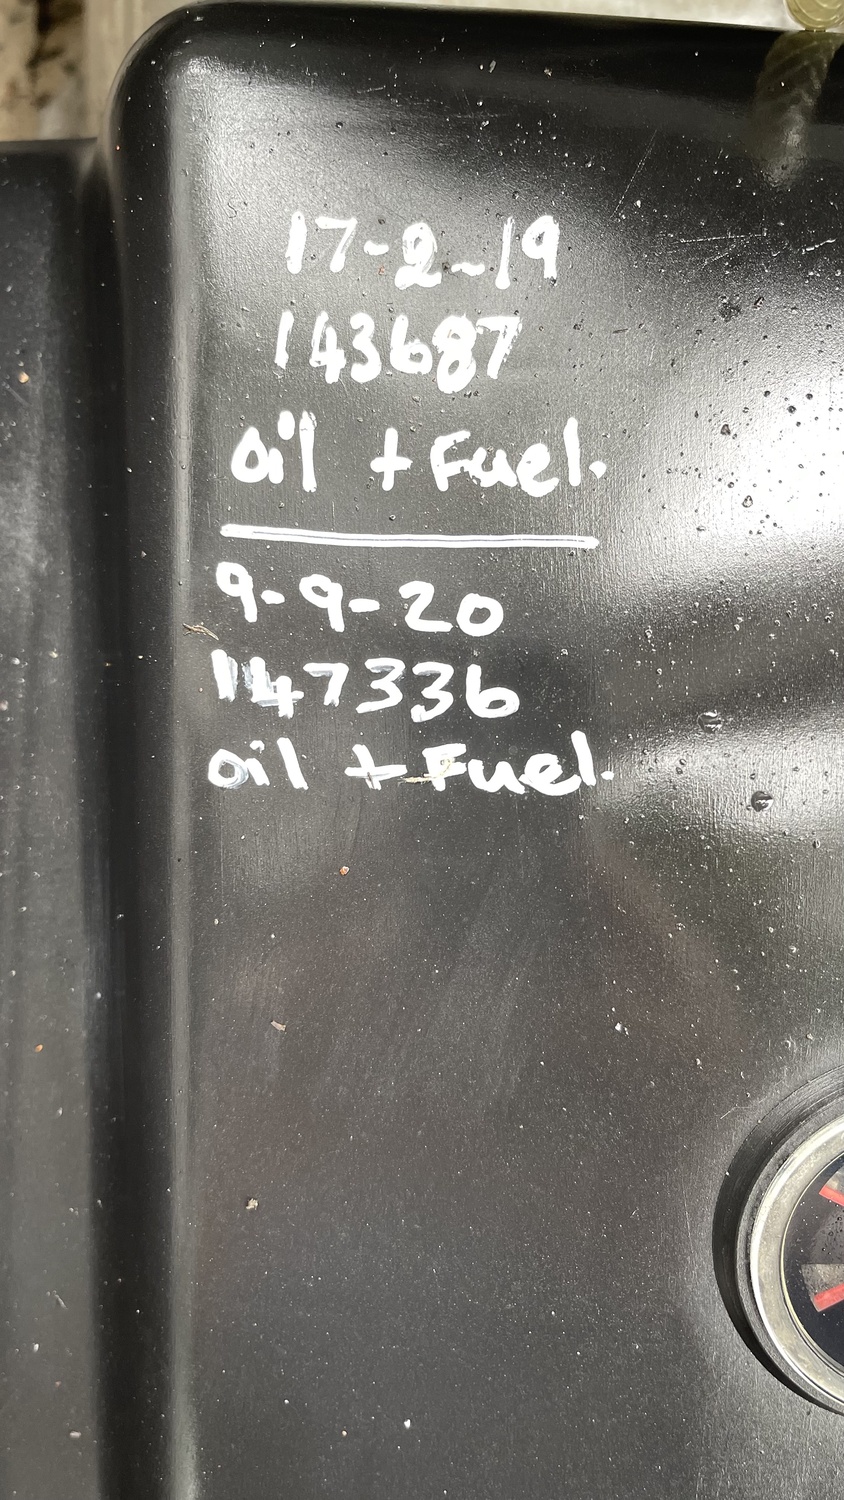 17-2-19
143687
oil + Fuel.
9-9-20
147336
oil + Fuel.